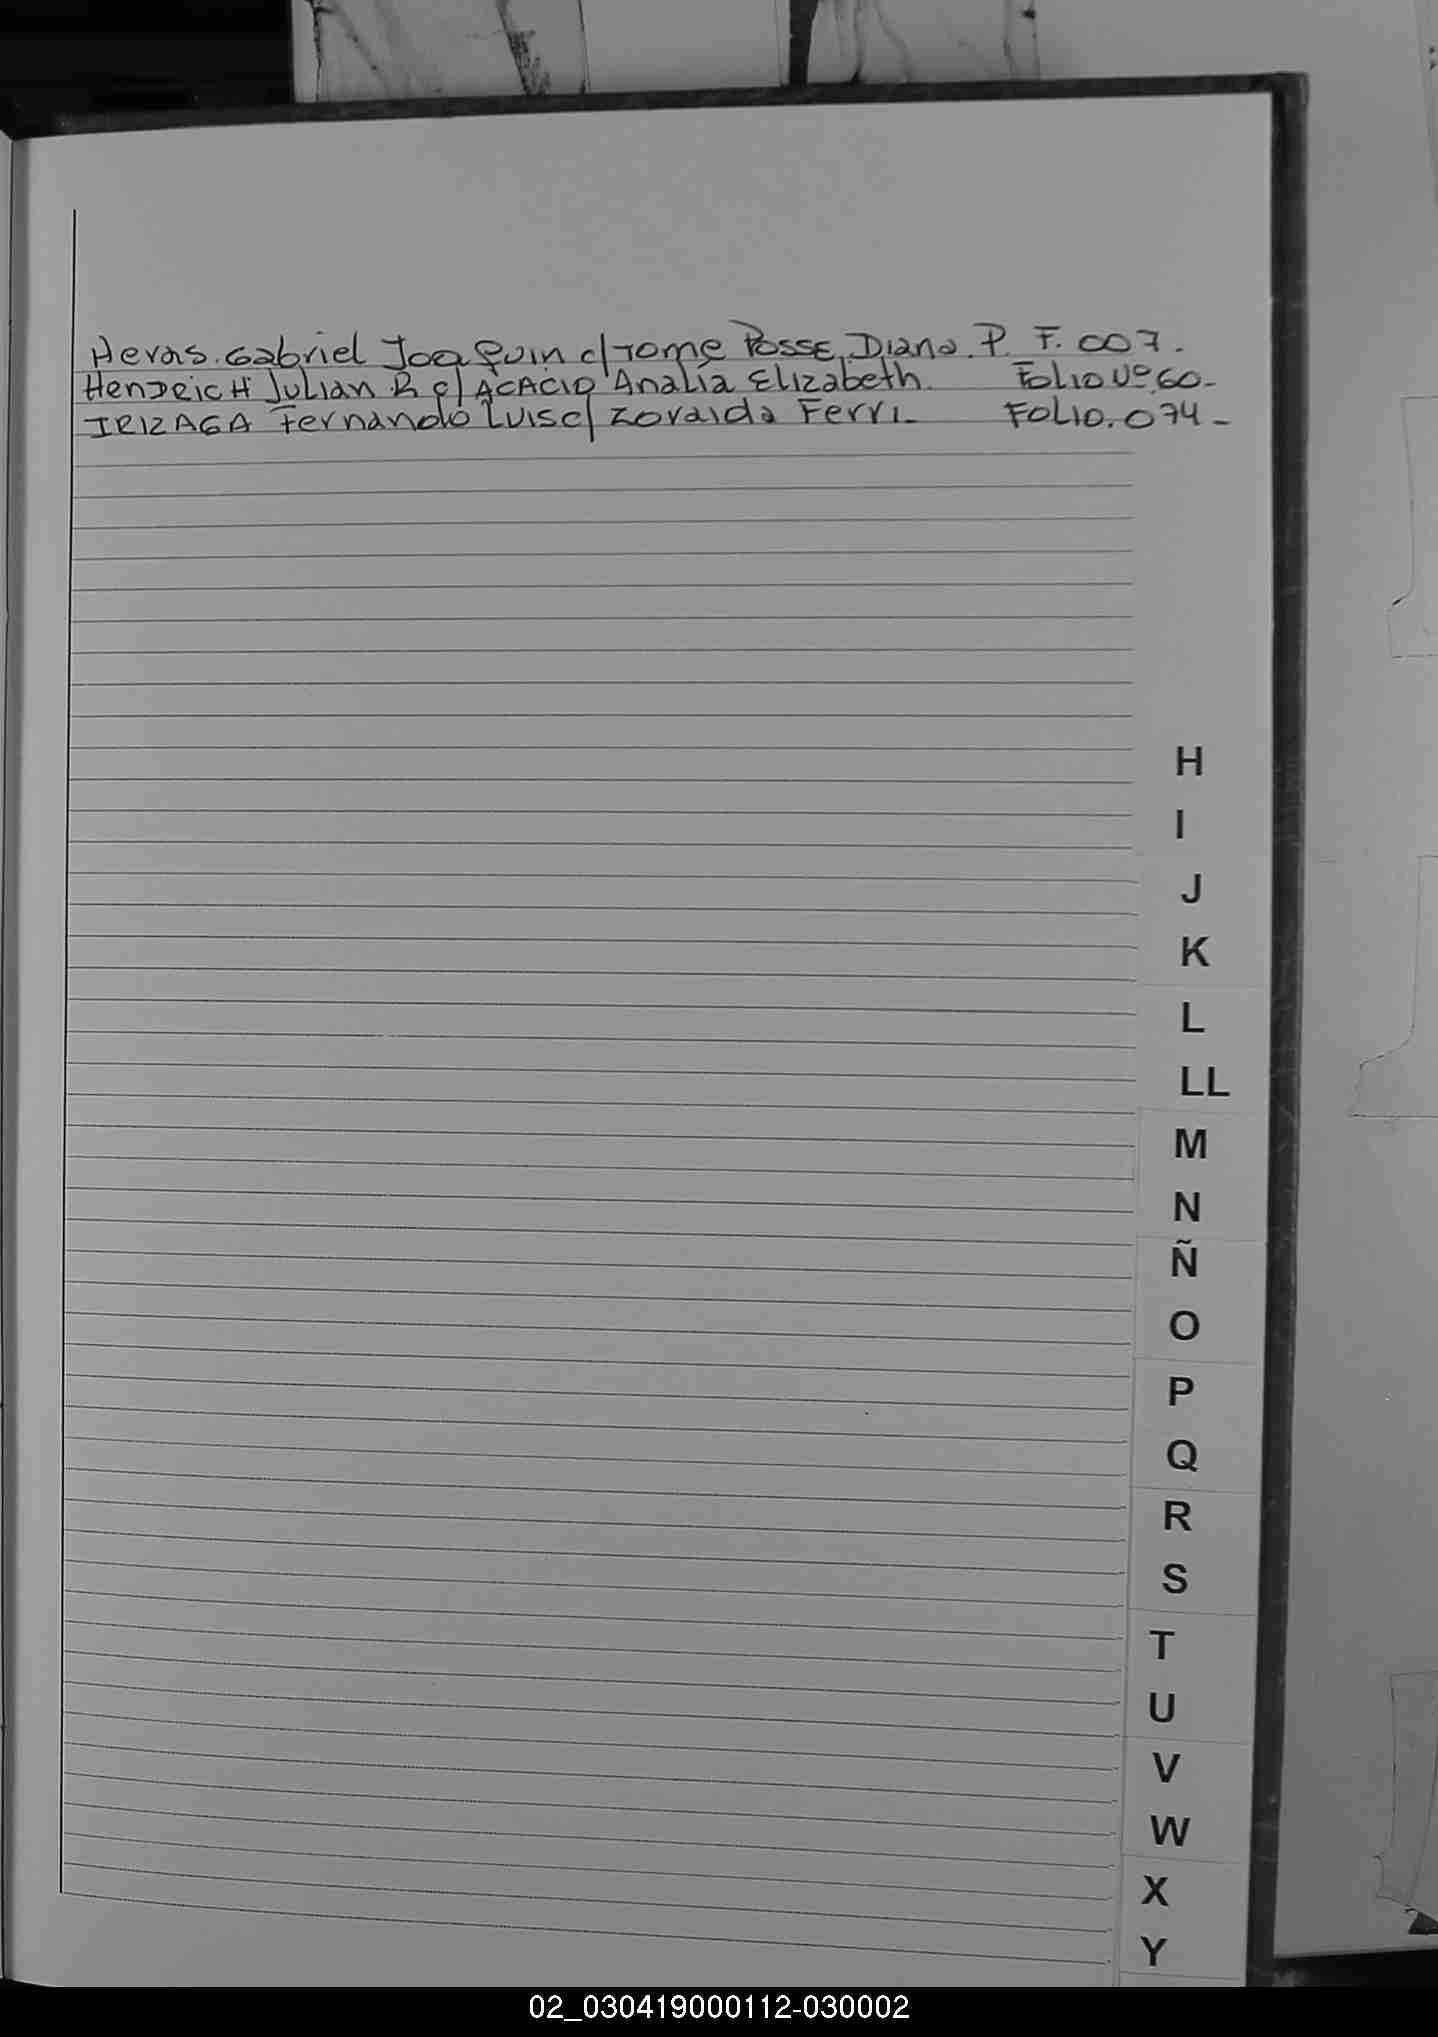 Heras. Gabriel Joaquin c/ Tome Posse, Diana. P. F. 007.
HenDRicH Julian R c/ ACACIO Analía Elizabeth. Folio Nº 60-
IRIZAGA Fernando Luis c/ Zoraida Ferri- FOLIO. 074-
H
I
J
K
L
LL
M
N
Ñ
O
P
Q
R
S
T
U
V
W
X
Y
02_030419000112-030002